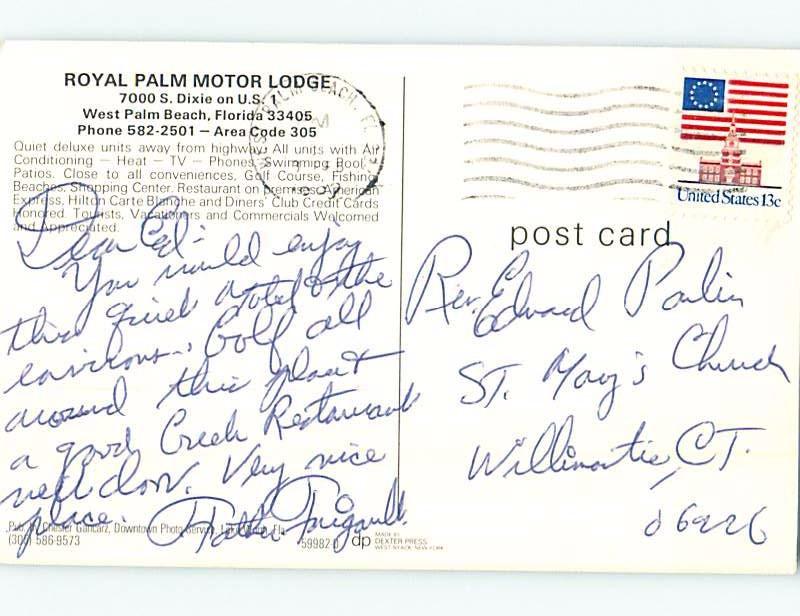 ROYAL PALM MOTOR LODGE
7000 S. Dixie on U.S. 1
West Palm Beach, Florida 33405
Phone 582-2501 — Area Code 305
Quiet deluxe units away from highway. All units with Air
Conditioning — Heat — TV — Phones, Swimming Pool,
Patios. Close to all conveniences, Golf Course, Fishing
Beaches, Shopping Center. Restaurant on premises. American
Express, Hilton Carte Blanche and Diners' Club Credit Cards
Honored. Tourists, Vacationers and Commercials Welcomed
and Appreciated.
Dear Ed:
You would enjoy
this quiet motel & the
environs. Golf all
around this place &
a good Greek Restaurant
next door. Very nice
place. Father
Pub. by Chester Gancarz, Downtown Photo Service, Fla.
(305) 586-9573
59982-D
dp
MADE BY
DEXTER PRESS
WEST NYACK, NEW YORK
PALM BEACH, FL
United States 13c
post card
Rev. Edward Poulin
ST. Mary's Church
Willimantic, CT.
06226